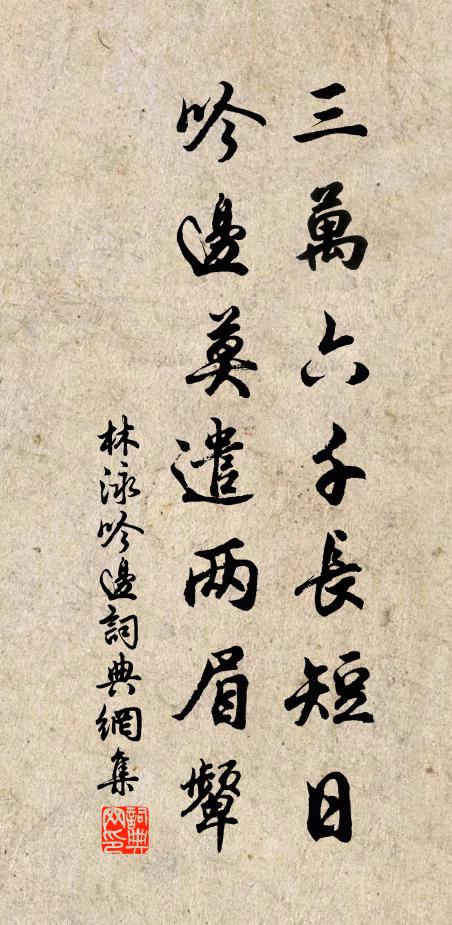 三萬六千長短日
吟邊莫遣兩眉顰
林泳吟邊詞典網集
詞典网印